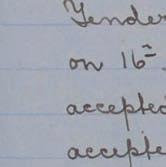 Tender
on 16th
accepted
accepte